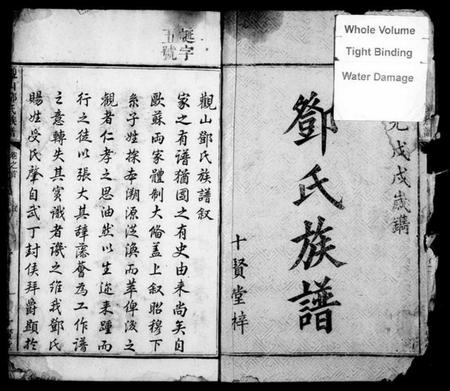 Whole Volume
Tight Binding
Water Damage
光戊戌歲鐫
鄧氏族譜
十賢堂梓
誕字
五號
觀山鄧氏族譜叙
家之有譜猶國之有史由來尚矣自
歐蘇兩家體制大備蓋上叙昭穆下
系子姓探本溯源泛渙而萃俾後之
觀者仁孝之思油然以生迩來踵而
行之徒以張大其辭藻薈為工作譜
之意轉失其實識者譏之維我鄧氏
賜姓受氏肇自武丁封侯拜爵顯於